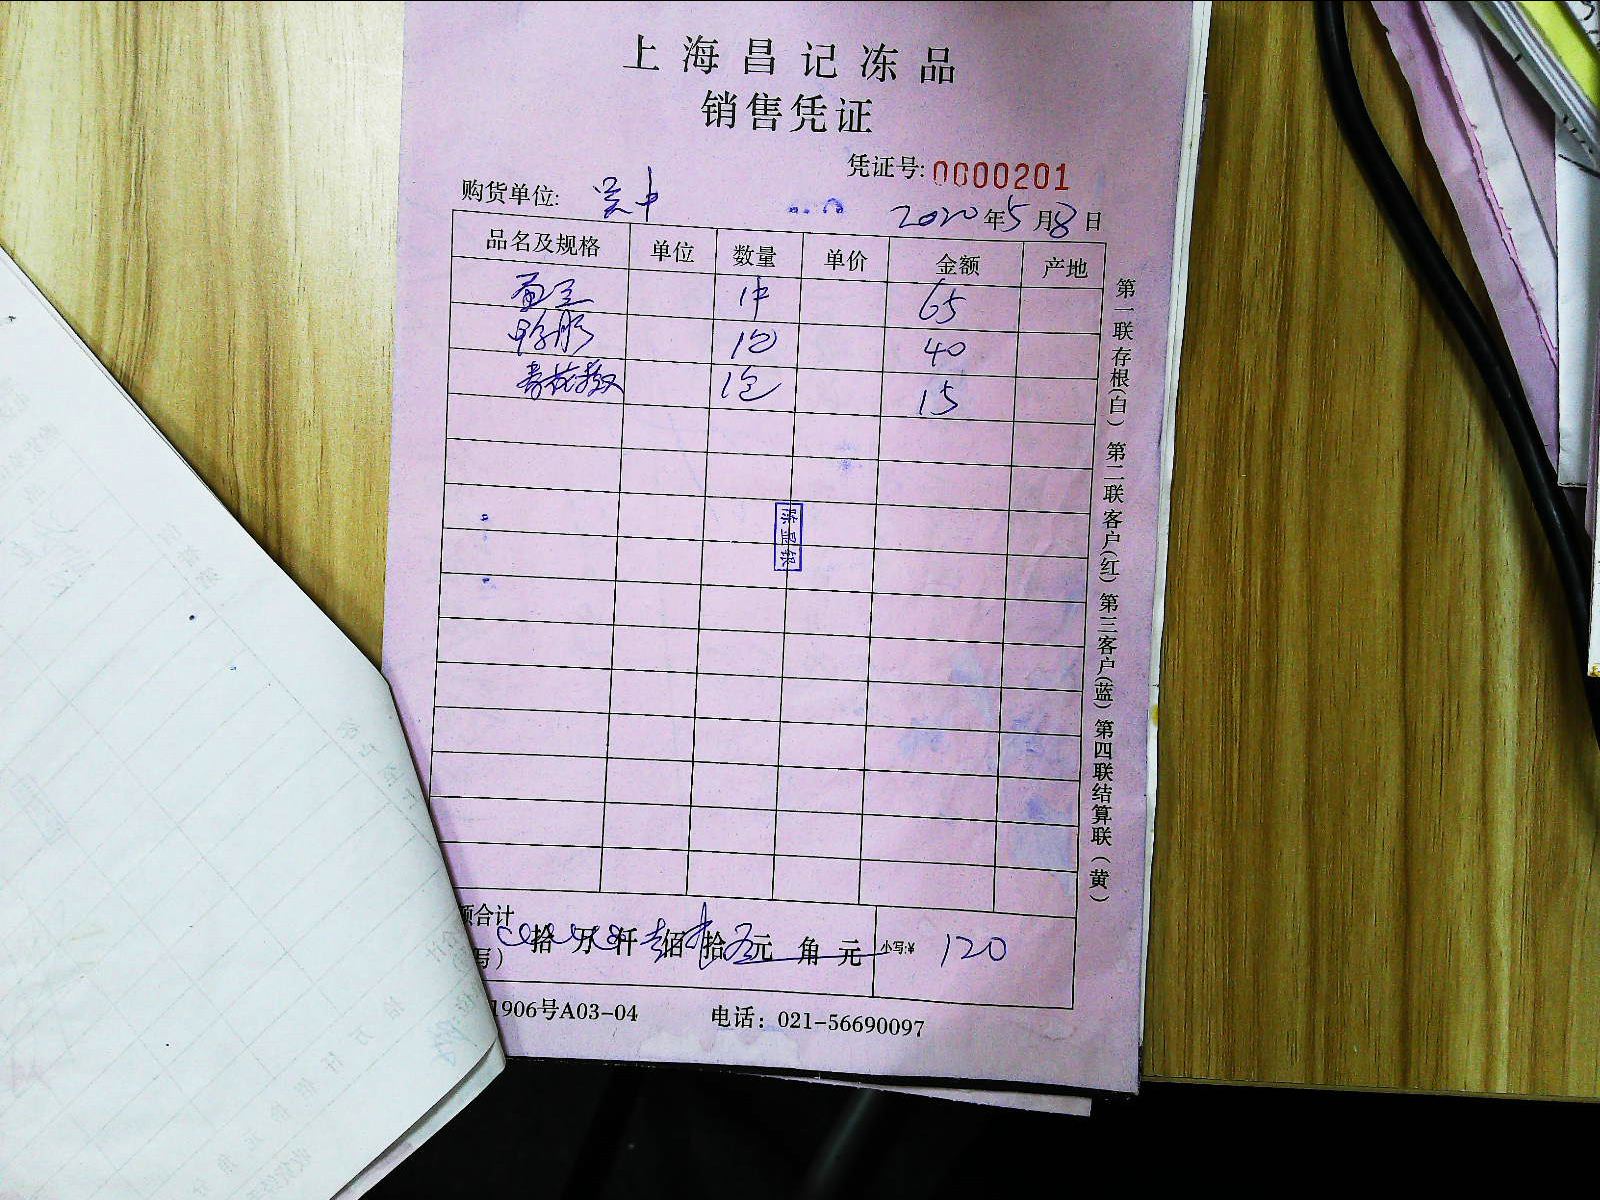 上海昌记冻品
销售凭证
凭证号: 0000201
购货单位: 吴中
2020年5月8日
品名及规格 单位 数量 单价 金额 产地
1件 65
1包 40
1包 15
额合计
写) 拾 万 仟 壹佰 贰拾 元 角 元 小写:¥ 120
1906号A03-04 电话: 021-56690097
第一联存根(白) 第二联客户(红) 第三客户(蓝) 第四联结算联(黄)